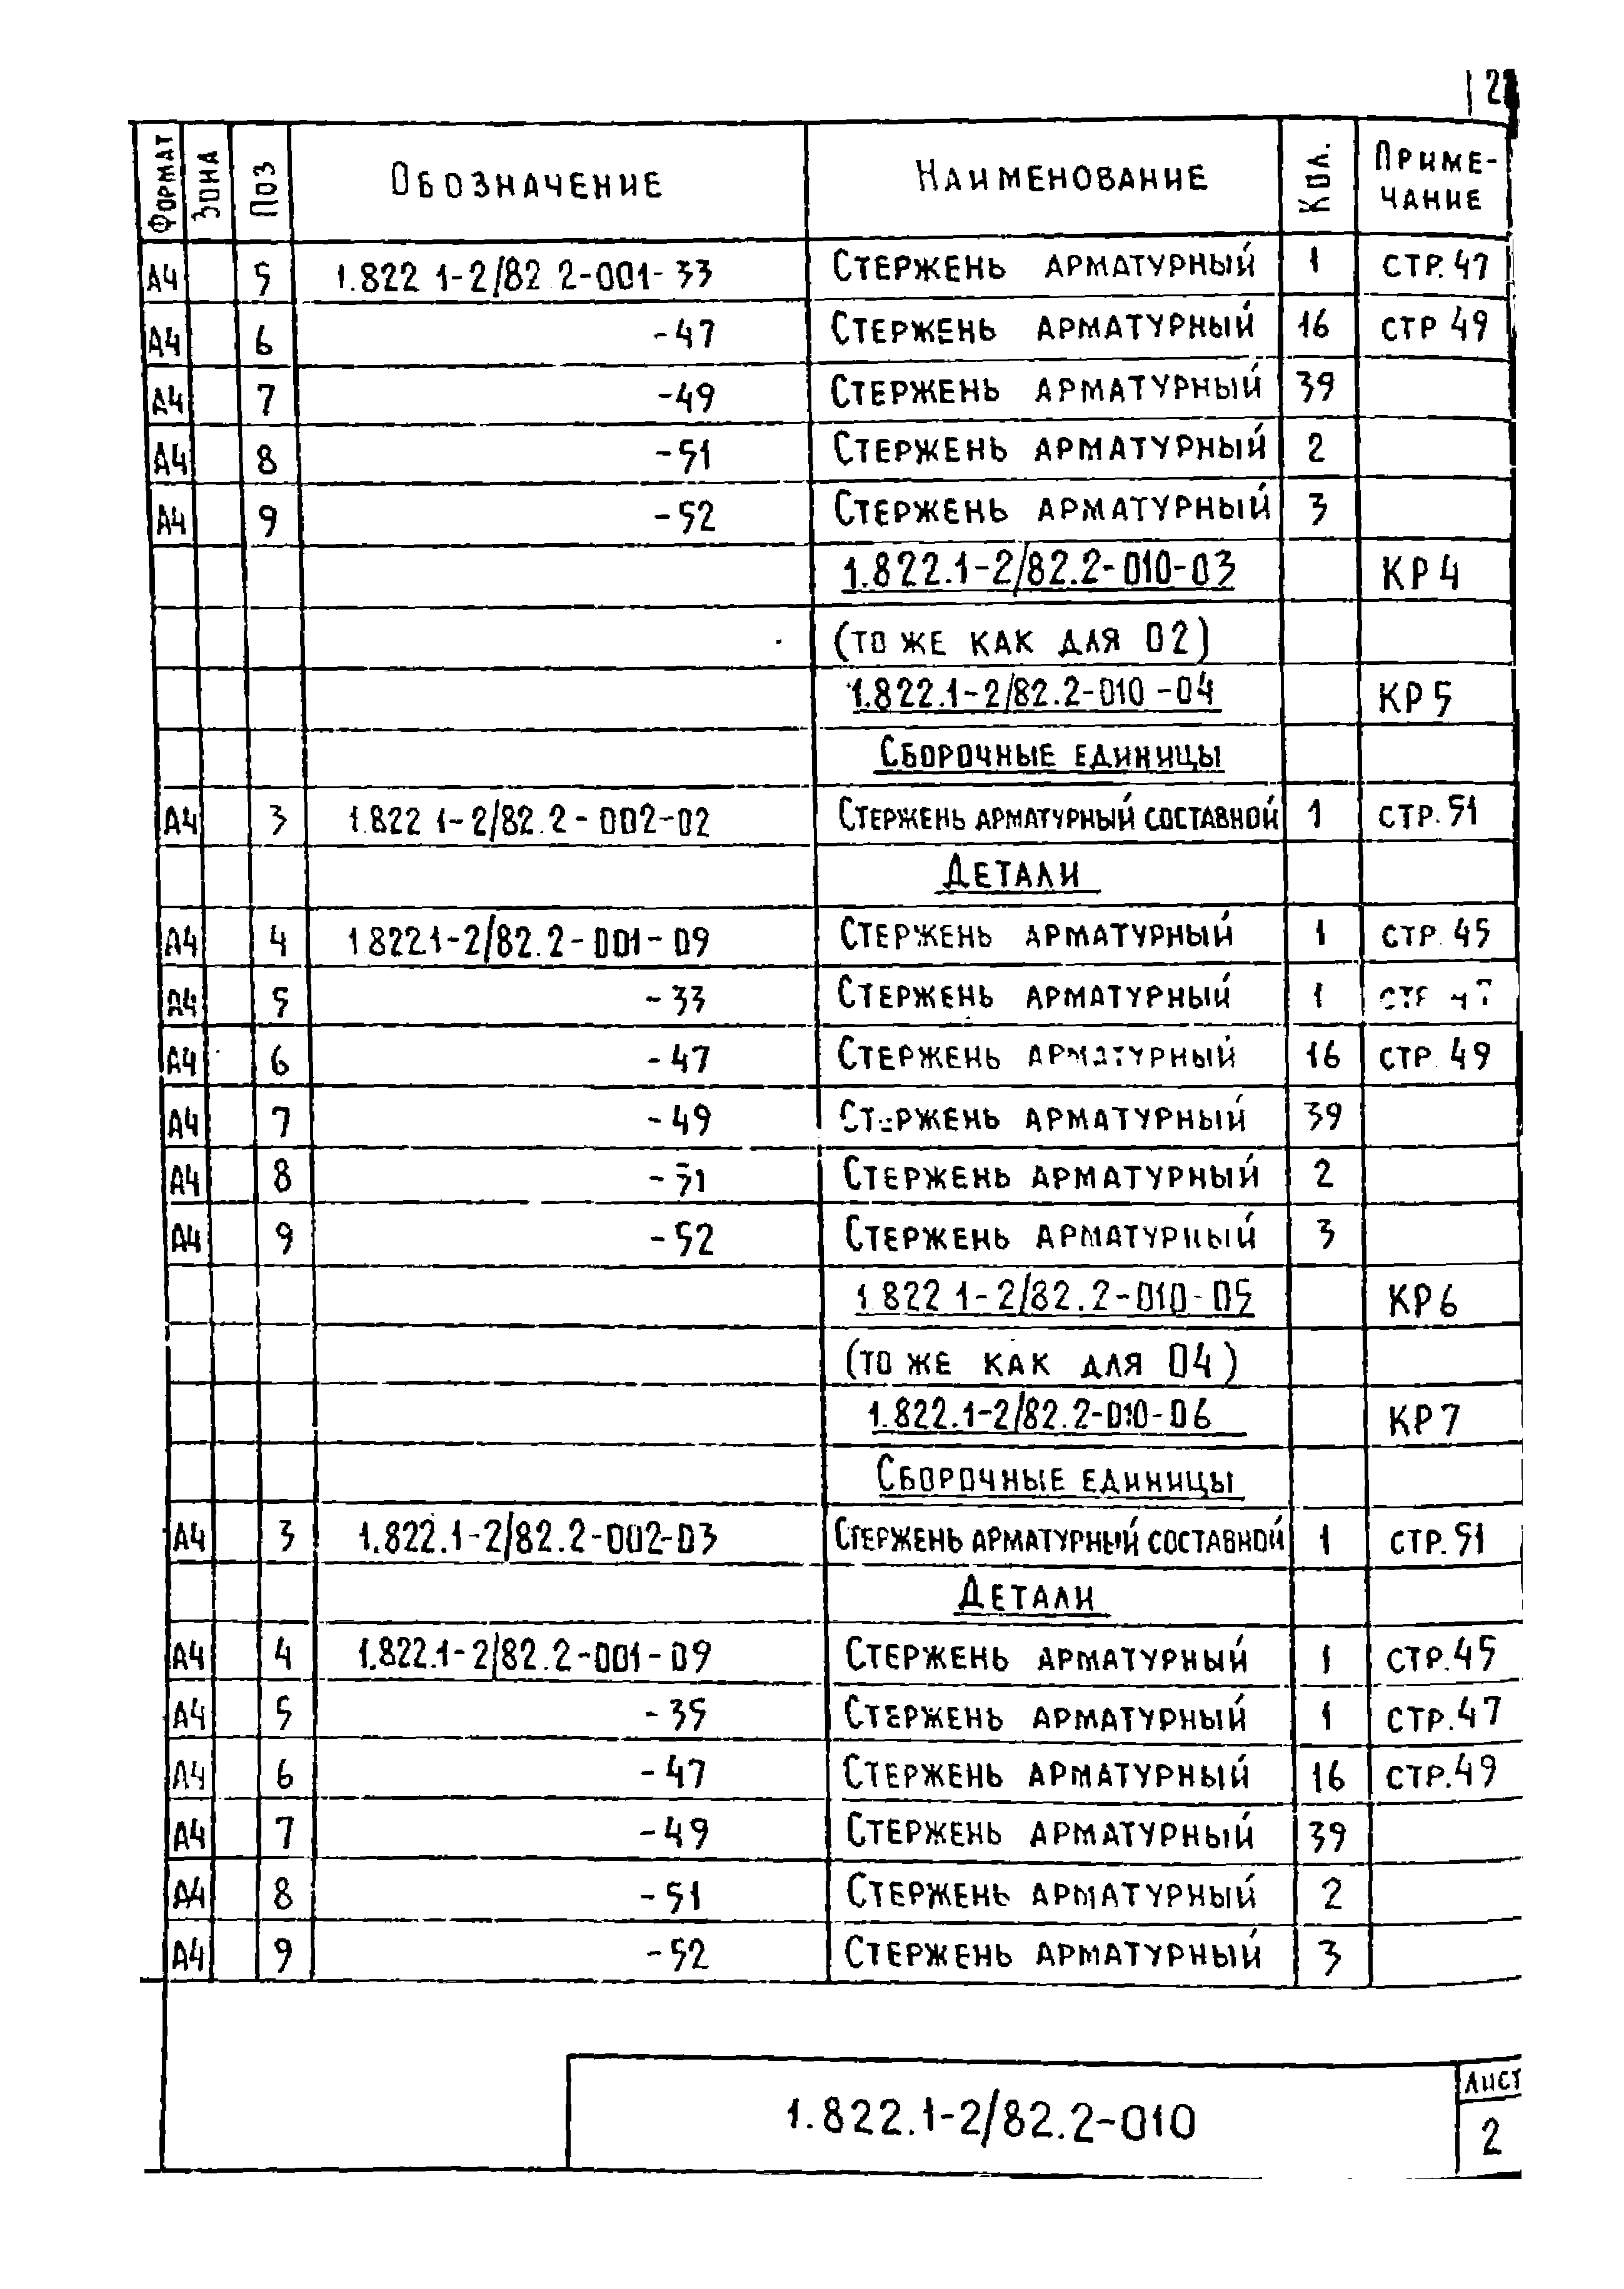 2
Формат Зона Поз Обозначение Наименование Кол. Приме-
чание
А4 5 1.822 1-2/82 2-001-33 Стержень арматурный 1 стр. 47
А4 6 -47 Стержень арматурный 16 стр 49
А4 7 -49 Стержень арматурный 39
А4 8 -51 Стержень арматурный 2
А4 9 -52 Стержень арматурный 3
1.822.1-2/82.2-010-03 КР4
(то же как для 02)
1.822.1-2/82.2-010-04 КР5
Сборочные единицы
А4 3 1.822 1-2/82.2-002-02 Стержень арматурный составной 1 стр. 51
Детали
А4 4 1.822.1-2/82.2-001-09 Стержень арматурный 1 стр. 45
А4 5 -33 Стержень арматурный 1
А4 6 -47 Стержень арматурный 16 стр. 49
А4 7 -49 Стержень арматурный 39
А4 8 -51 Стержень арматурный 2
А4 9 -52 Стержень арматурный 3
1.822 1-2/82.2-010-05 КР6
(то же как для 04)
1.822.1-2/82.2-010-06 КР7
Сборочные единицы
А4 3 1.822.1-2/82.2-002-03 Стержень арматурный составной 1 стр. 51
Детали
А4 4 1.822.1-2/82.2-001-09 Стержень арматурный 1 стр. 45
А4 5 -35 Стержень арматурный 1 стр. 47
А4 6 -47 Стержень арматурный 16 стр. 49
А4 7 -49 Стержень арматурный 39
А4 8 -51 Стержень арматурный 2
А4 9 -52 Стержень арматурный 3
1.822.1-2/82.2-010
Лист
2